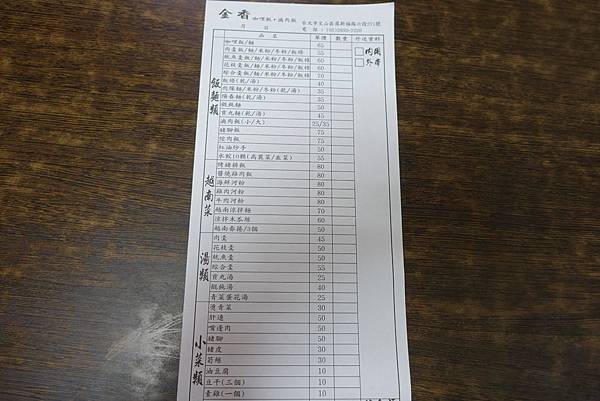 金香 咖哩飯·滷肉飯 台北市文山區羅斯福路六段271號
月 日 電話:(02)2933-2228
品名 單價 數量 外送資料
咖哩飯/麵 65
肉羹飯/麵/米粉/冬粉/板條 55
魷魚羹飯/麵/米粉/冬粉/板條 60
花枝羹飯/麵/米粉/冬粉/板條 60
綜合羹飯/麵/米粉/冬粉/板條
板條(乾/湯) 40
肉燥麵/米粉/冬粉(乾/湯) 35
陽春麵(乾/湯) 35
餛飩麵 50
貢丸麵(乾/湯) 45
滷肉飯(小/大) 25/35
豬腳飯 75
控肉飯 75
紅油炒手 50
水餃10顆(高麗菜/韭菜) 55
飯麵類
內用
外帶
烤豬排飯 80
醬燒雞肉飯 80
海鮮河粉 80
雞肉河粉 80
牛肉河粉 80
越南涼拌麵 70
涼拌木瓜絲 60
越南春捲/3個 50
越南菜
肉羹 45
花枝羹 50
魷魚羹 50
綜合羹 55
貢丸湯 25
餛飩湯 40
青菜蛋花湯 25
湯類
燙青菜 30
肝連 50
嘴邊肉 50
豬腳 50
豬皮 30
筍絲 30
油豆腐 10
豆干(三個) 10
素雞(一個) 10
小菜類